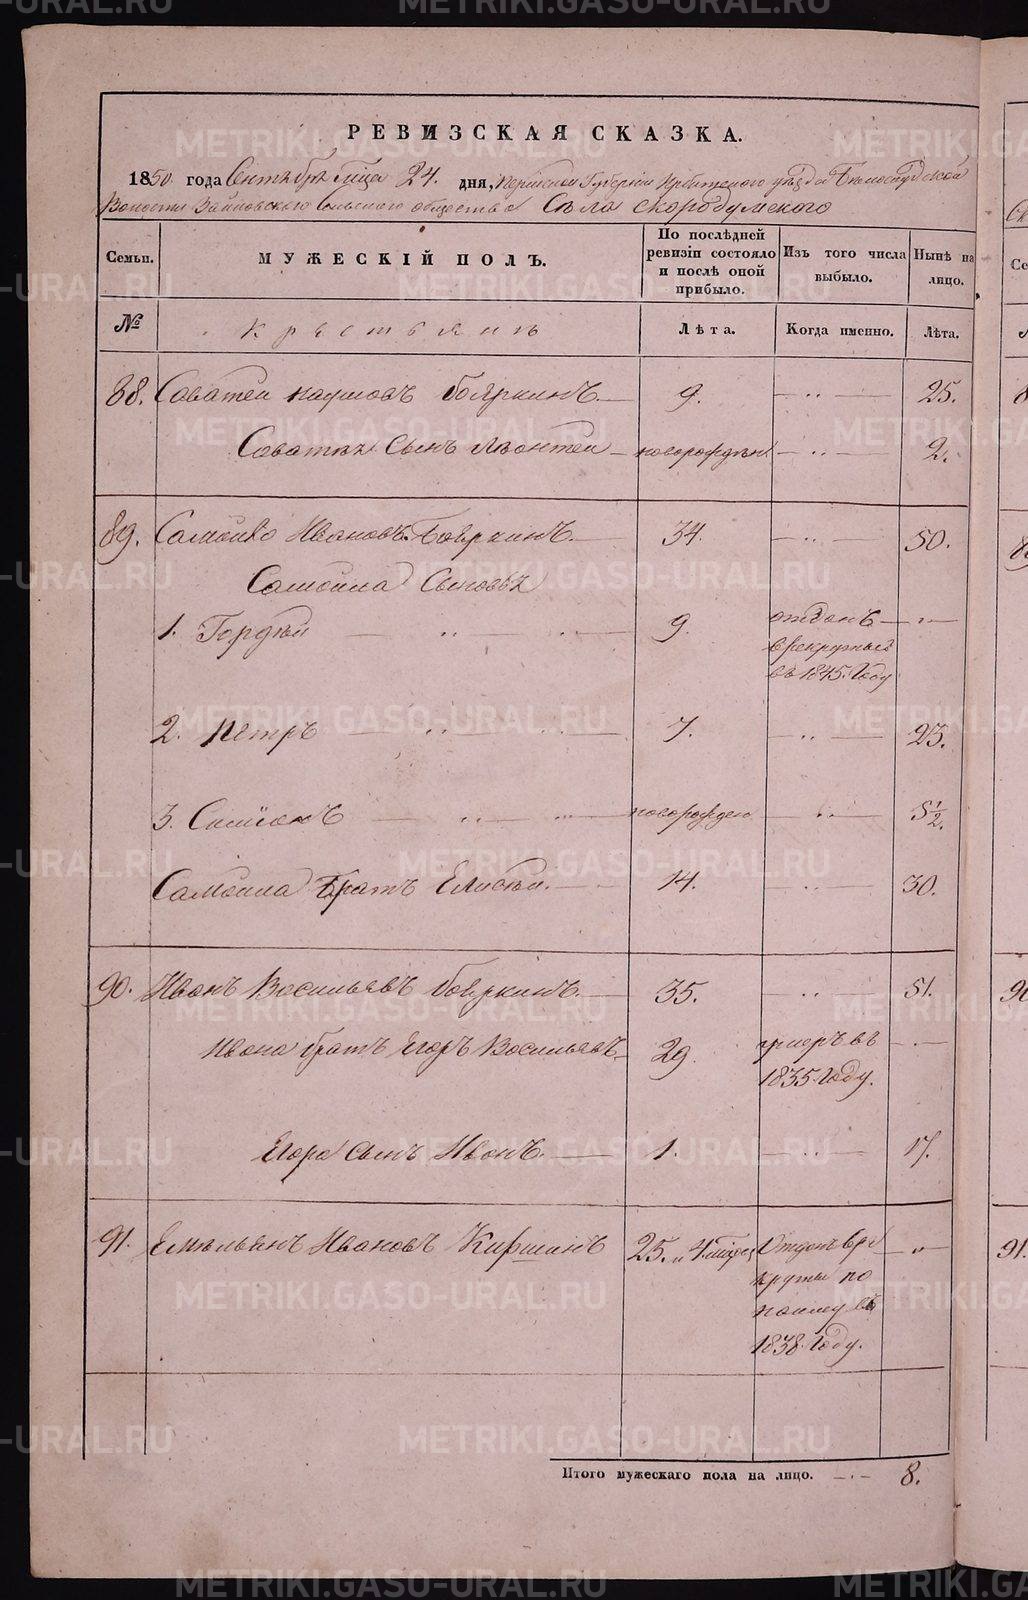 РЕВИЗСКАЯ СКАЗКА.
1850 года Сентября Мца 24. дня, Пермской Губернии Ирбитскаго уезда Белослудской
Волости Зайковскаго Сельскаго общества Села Скородумскаго
Семьи. МУЖЕСКІЙ ПОЛЪ. По послѣдней ревизіи состояло и послѣ оной прибыло. Изъ того числа выбыло. Нынѣ на лицо.
№ Крестьянъ Лѣта. Когда именно. Лѣта.
88. Саватеи Наумовъ бояркинъ 9. 25.
Саватея Сынъ Леонтеи новорожден. 2.
89. Самойло Ивановъ Бояркинъ 34. 50.
Самойла Сыновья
1. Гордѣи 9. отданъ
врекруты
въ 1845. Году
2. Петръ 7. 23.
3. Симіонъ новорожден 5 1/2.
Самойла Братъ Елисеи. 14. 30.
90. Иванъ Васильевъ бояркинъ 35. 51.
Ивана братъ Егоръ Васильевъ 29 умеръ въ
1835. Году.
Егора сынъ Иванъ. 1. 17.
91. Емельянъ Ивановъ Киршинъ 25. и 4. Отданъ вре
круты по
найму въ
1838. Году.
Итого мужескаго пола на лицо. 8.
METRIKI.GASO-URAL.RU